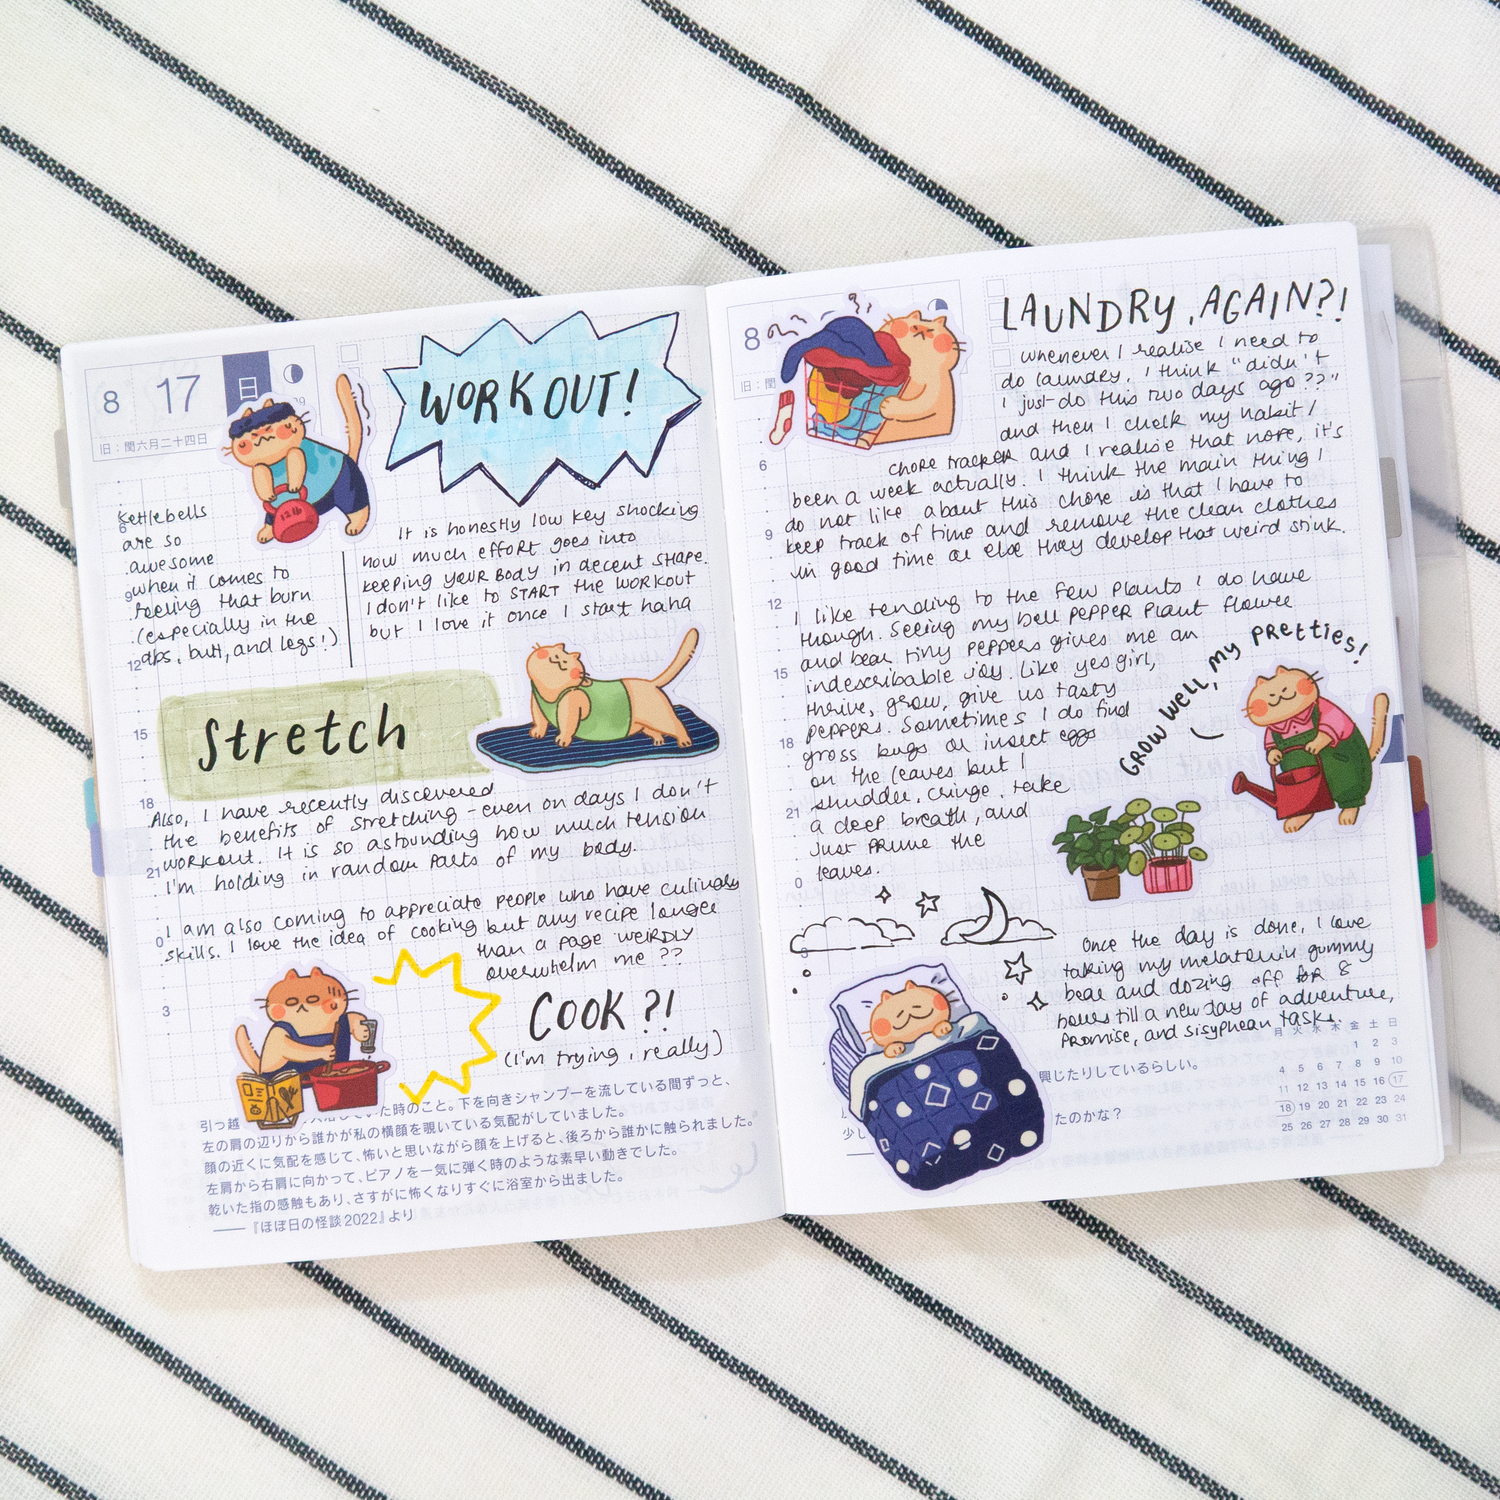 8 17 日
旧：閏六月二十四日
WORKOUT!
12 lb
Kettlebells
are so
awesome
when it comes to
feeling that burn
(especially in the
abs, butt, and legs!)
It is honestly low key shocking
how much effort goes into
keeping your body in decent shape.
I don't like to START the workout
but I love it once I start haha
Stretch
Also, I have recently discovered
the benefits of stretching - even on days I don't
workout. It is so astounding how much tension
I'm holding in random parts of my body.
I am also coming to appreciate people who have culinary
skills. I love the idea of cooking but any recipe longer
than a page weirdly
overwhelm me ??
COOK?!
(I'm trying, really)
6
9
12
15
18
21
0
3
引っ越
た時のこと。下を向きシャンプーを流している間ずっと、
左の肩の辺りから誰かが私の横顔を覗いている気配がしていました。
顔の近くに気配を感じて、怖いと思いながら顔を上げると、後ろから誰かに触られました。
左肩から右肩に向かって、ピアノを一気に弾く時のような素早い動きでした。
乾いた指の感触もあり、さすがに怖くなりすぐに浴室から出ました。
──『ほぼ日の怪談2022』より
8
旧：閏
LAUNDRY, AGAIN?!
Whenever I realise I need to
do laundry, I think "didn't
I just do this two days ago??"
and then I check my habit/
chore tracker and I realise that nope, it's
been a week actually. I think the main thing I
do not like about this chore is that I have to
keep track of time and remove the clean clothes
in good time or else they develop that weird stink.
I like tending to the few plants I do have
though. Seeing my bell pepper plant flower
and bear tiny peppers gives me an
indescribable joy. Like yes girl,
thrive, grow, give us tasty
peppers. Sometimes I do find
gross bugs or insect eggs
on the leaves but I
shudder, cringe, take
a deep breath, and
just prune the
leaves.
GROW WELL, MY PRETTIES!
Once the day is done, I love
taking my melatonin gummy
bear and dozing off for 8
hours till a new day of adventure,
promise, and sisyphean tasks.
6
9
12
15
18
21
0
3
興じたりしているらしい。
たのかな？
少し
月 火 水 木 金 土 日
1 2 3
4 5 6 7 8 9 10
11 12 13 14 15 16 17
18 19 20 21 22 23 24
25 26 27 28 29 30 31